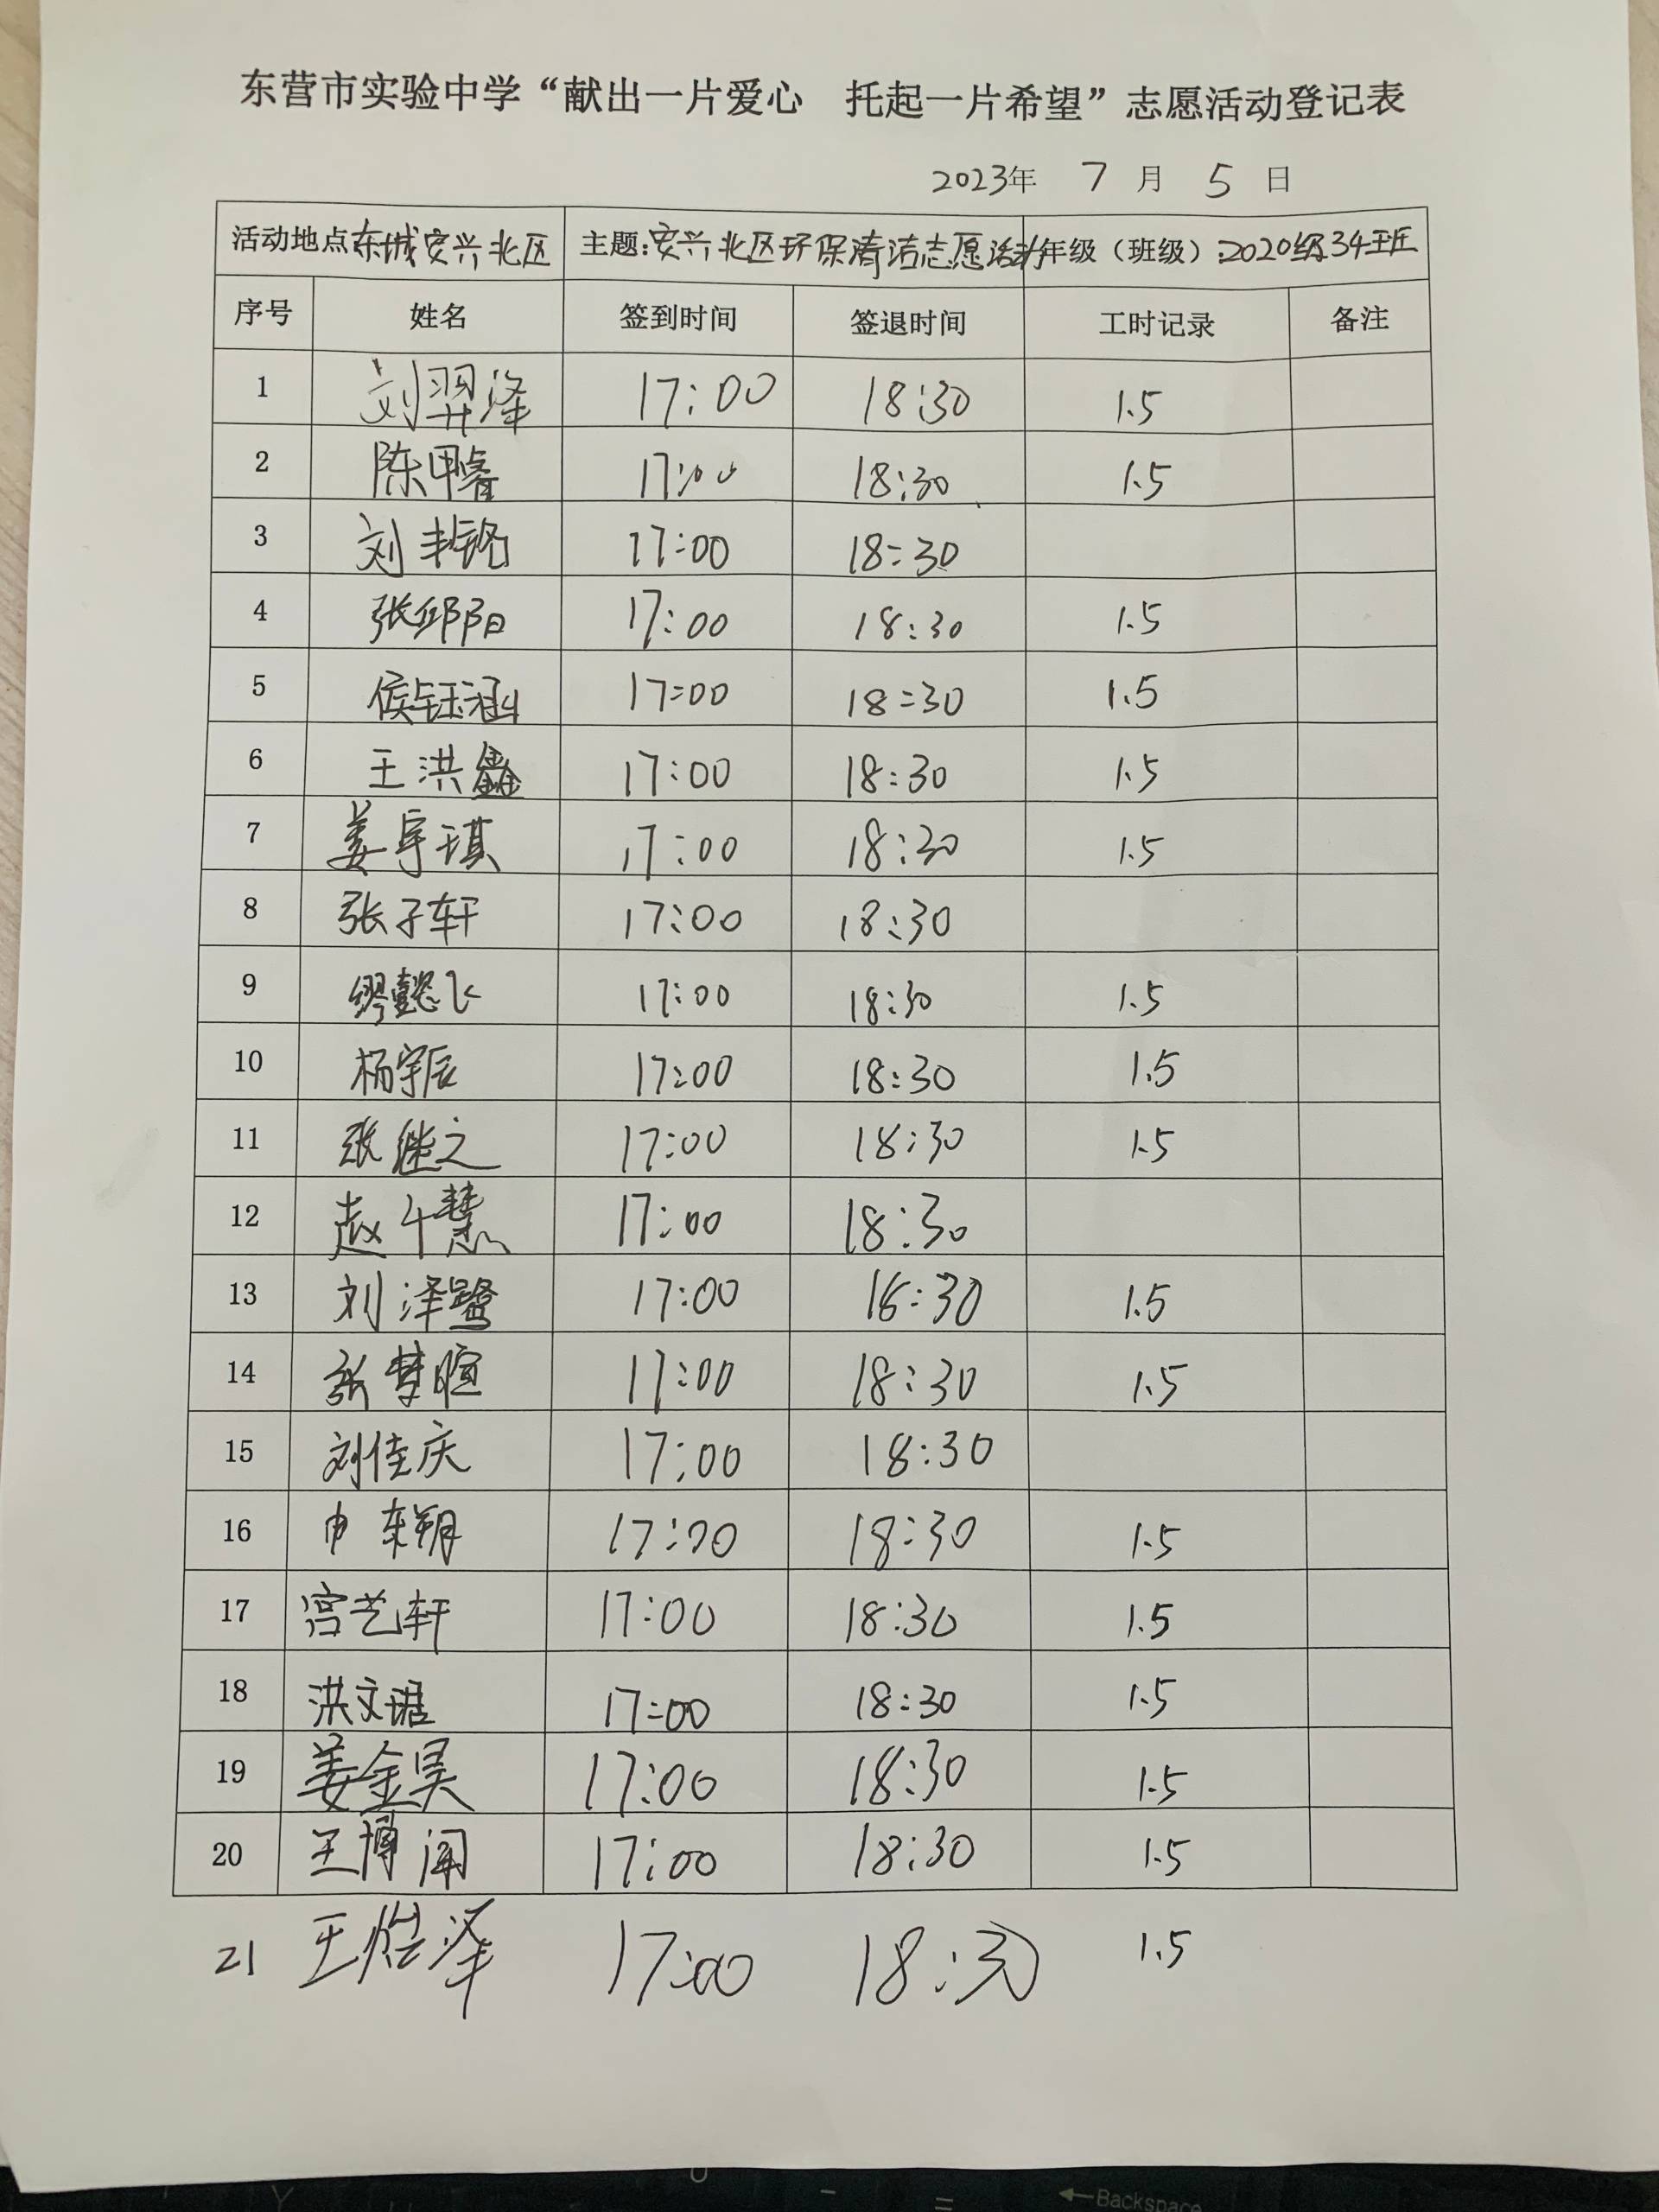 东营市实验中学“献出一片爱心 托起一片希望”志愿活动登记表
2023年 7 月 5 日
活动地点 东城安兴北区 主题:安兴北区环保清洁志愿活动 年级（班级）:2020级34班
序号 姓名 签到时间 签退时间 工时记录 备注
1 刘羿泽 17:00 18:30 1.5
2 陈甲睿 17:00 18:30 1.5
3 刘丰铭 17:00 18:30
4 张邱阳 17:00 18:30 1.5
5 侯钰涵 17:00 18:30 1.5
6 王洪鑫 17:00 18:30 1.5
7 姜宇琪 17:00 18:30 1.5
8 张子轩 17:00 18:30
9 缪懿飞 17:00 18:30 1.5
10 杨宇辰 17:00 18:30 1.5
11 张继之 17:00 18:30 1.5
12 赵斗慧 17:00 18:30
13 刘泽鹭 17:00 18:30 1.5
14 张梦暄 17:00 18:30 1.5
15 刘佳庆 17:00 18:30
16 东朔 17:00 18:30 1.5
17 宫艺轩 17:00 18:30 1.5
18 洪文珺 17:00 18:30 1.5
19 姜金昊 17:00 18:30 1.5
20 王博闻 17:00 18:30 1.5
21 王焓泽 17:00 18:30 1.5
Backspace